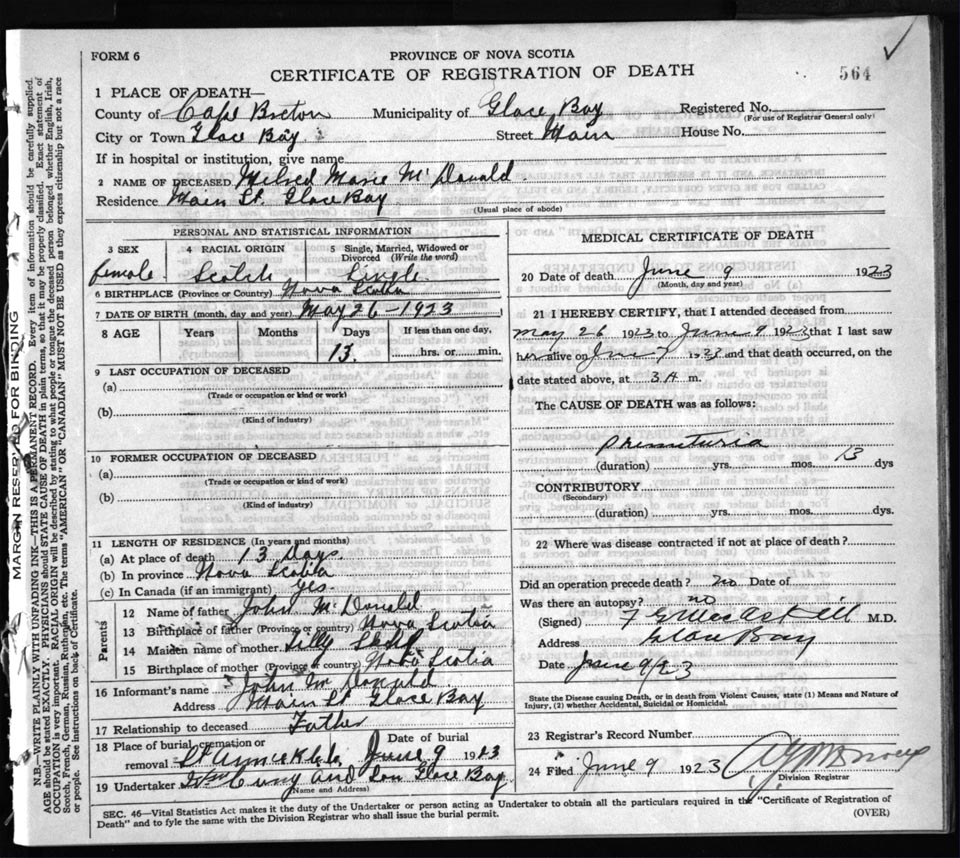 FORM 6
PROVINCE OF NOVA SCOTIA
CERTIFICATE OF REGISTRATION OF DEATH
564
1 PLACE OF DEATH—
County of Cape Breton Municipality of Glace Bay Registered No.
(For use of Registrar General only)
City or Town Glace Bay Street Main House No.
If in hospital or institution, give name
2 NAME OF DECEASED Milred Marie McDonald
Residence Main St. Glace Bay
(Usual place of abode)
PERSONAL AND STATISTICAL INFORMATION
3 SEX 4 RACIAL ORIGIN 5 Single, Married, Widowed or Divorced (Write the word)
female Scotch Single
6 BIRTHPLACE (Province or Country) Nova Scotia
7 DATE OF BIRTH (month, day and year) May 26 - 1923
8 AGE Years Months Days If less than one day,
13. hrs. or min.
9 LAST OCCUPATION OF DECEASED
(a)
(Trade or occupation or kind or work)
(b)
(Kind of industry)
10 FORMER OCCUPATION OF DECEASED
(a)
(Trade or occupation or kind or work)
(b)
(Kind of industry)
11 LENGTH OF RESIDENCE (In years and months)
(a) At place of death 13 Days.
(b) In province Nova Scotia
(c) In Canada (if an immigrant) yes
Parents
12 Name of father John McDonald
13 Birthplace of father (Province or country) Nova Scotia
14 Maiden name of mother
15 Birthplace of mother (Province or country) Nova Scotia
16 Informant's name John McDonald
Address Main St Glace Bay
17 Relationship to deceased Father
18 Place of burial, cremation or removal Date of burial June 9 1923
19 Undertaker and Son Glace Bay
(Name and Address)
MEDICAL CERTIFICATE OF DEATH
20 Date of death June 9 1923
(Month, day and year)
21 I HEREBY CERTIFY, that I attended deceased from
May 26 1923 to June 9 1923 that I last saw
her alive on 1923 and that death occurred, on the
date stated above, at 3 A m.
The CAUSE OF DEATH was as follows:
(duration) yrs. mos. 13 dys
CONTRIBUTORY
(Secondary)
(duration) yrs. mos. dys.
22 Where was disease contracted if not at place of death?
Did an operation precede death? no Date of
Was there an autopsy? no
(Signed) M.D.
Address Glace Bay
Date June 9/23
State the Disease causing Death, or in death from Violent Causes, state (1) Means and Nature of
Injury, (2) whether Accidental, Suicidal or Homicidal.
23 Registrar's Record Number
24 Filed June 9 1923
Division Registrar
SEC. 46—Vital Statistics Act makes it the duty of the Undertaker or person acting as Undertaker to obtain all the particulars required in the "Certificate of Registration of
Death" and to fyle the same with the Division Registrar who shall issue the burial permit.
(OVER)
MARGIN RESERVED FOR BINDING
N.B.—WRITE PLAINLY WITH UNFADING INK—THIS IS A PERMANENT RECORD. Every item of information should be carefully supplied.
AGE should be stated EXACTLY. PHYSICIANS should STATE CAUSE OF DEATH in plain terms, so that it may be properly classified. Exact statement of
OCCUPATION is very important. RACIAL ORIGIN will be described by stating to what people or tongue the deceased person belonged whether English, Irish,
Scotch, French, German, Russian, Ruthenian, etc. The terms "AMERICAN" OR "CANADIAN" MUST NOT BE USED as they express citizenship but not a race
or people. See instructions on back of Certificate.